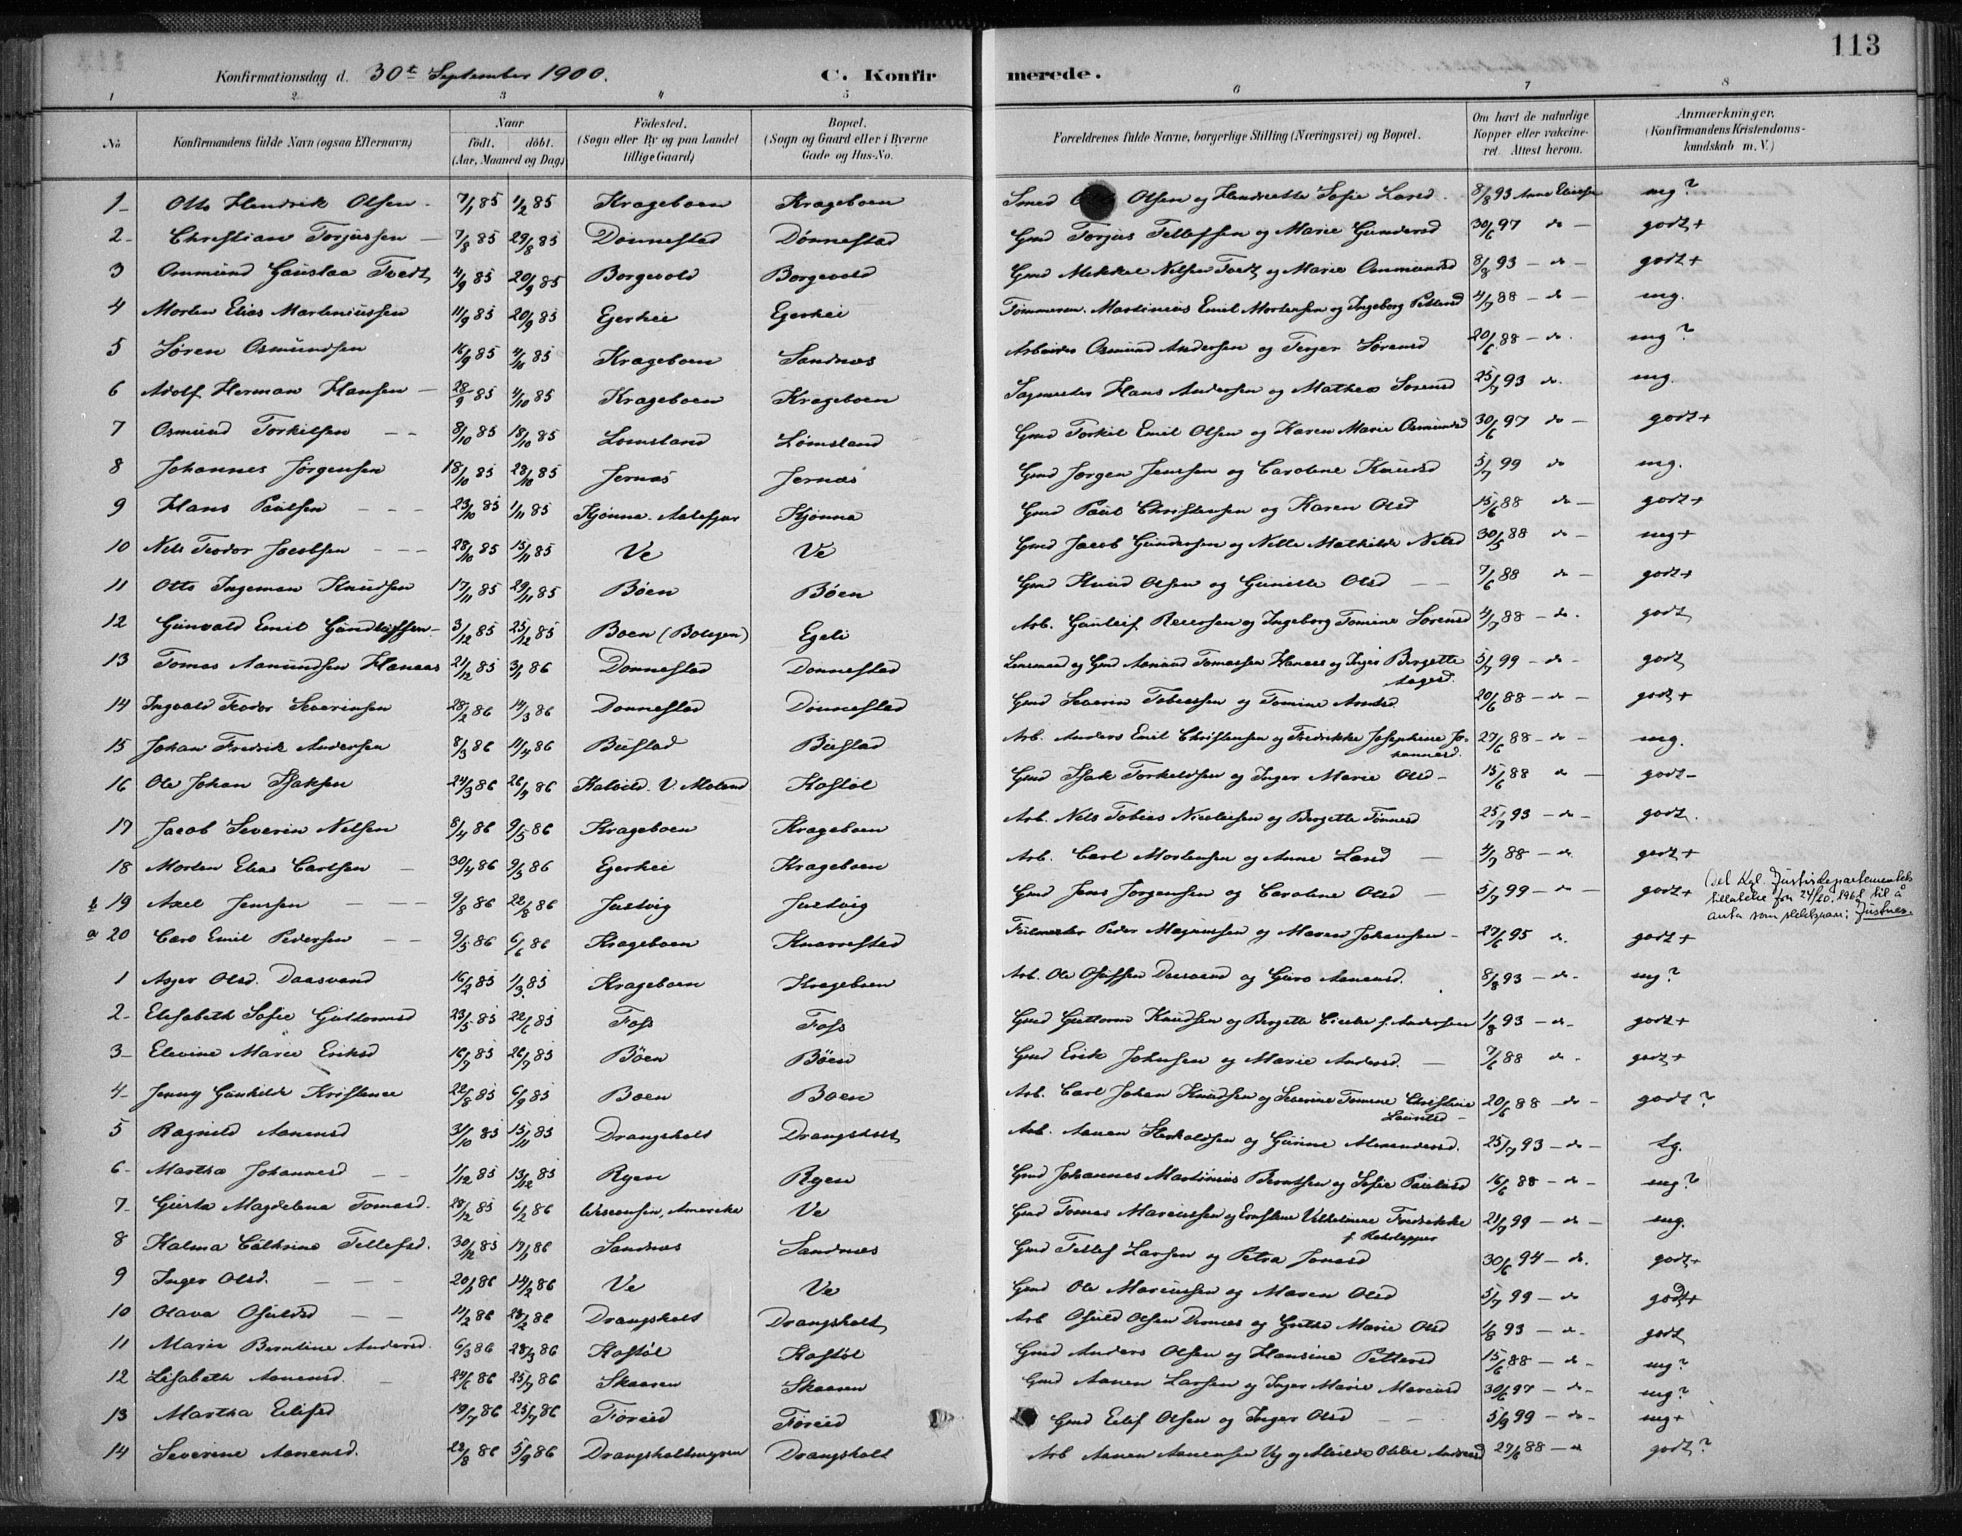 113
Konfirmationsdag d. 30te September 1900. C. Konfirmerede.
1 2 3 4 5 6 7 8
No. Konfirmandens fulde Navn (ogsaa Efternavn) Naar født. døbt. (Aar, Maaned og Dag) Fødested. (Sogn eller By og paa Landet tillige Gaard) Bopæl. (Sogn og Gaard eller i Byerne Gade og Hus-No. Forældrenes fulde Navne, borgerlige Stilling (Næringsvei) og Bopæl. Om havt de naturlige Kopper eller vakcineret. Attest herom. Anmærkninger. (Konfirmandens Kristendomskundskab m. V.)
1 Otto Hendrik Olsen 7/1 85 1/2 85 Krageboen Krageboen Smed Olsen og Hendriette Sofie Larsd 8/8 93 mg?
2 Christian Torjussen 7/8 85 29/8 85 Dønnestad Dønnestad Gmd Torjus Tellefsen og Marie Gundersd 30/6 97 do godt+
3 Osmund Gauslaa Tvedt 4/9 85 20/9 85 Borgevold Borgevold Gmd Mikkel Nilsen Tvedt og Marie Osmundsd 8/8 93 do godt+
4 Morten Elias Martiniussen 11/9 85 20/9 85 Egerhei Egerhei Tømmerm. Martinius Emil Mortensen og Ingeborg Pettersd 4/7 88 do mg.
5 Søren Osmundsen 16/9 85 4/10 85 Krageboen Sandnæs Arbeider Osmund Andersen og Terjer Sørensd 20/6 88 do mg?
6 Adolf Herman Hansen 28/9 85 4/10 85 Krageboen Krageboen Sagmester Hans Andersen og Mathea Sørensd 25/7 93 do mg.
7 Osmund Torkilsen 8/10 85 18/10 85 Lømsland Lømsland Gmd Torkil Emil Olsen og Karen Marie Osmundsd 30/6 97 do godt+
8 Johannes Jørgensen 18/10 85 28/10 85 Jernæs Jernæs Gmd Jørgen Jenssen og Caroline Knudsd 5/7 99 do mg.
9 Hans Paulsen 23/10 85 1/11 85 Kjønna Aalefjær Kjønna Gmd Paul Christensen og Karen Olsd 15/6 88 do godt+
10 Nils Teodor Jacobsen 28/10 85 15/11 85 Ve Ve Gmd Jacob Gundersen og Nille Mathilde Nilsd 30/5 88 do mg+
11 Otto Ingeman Knudsen 17/11 85 29/11 85 Bøen Bøen Gmd Knud Olsen og Gunille Olsd 7/6 88 do godt+
12 Gunvald Emil 3/12 85 25/12 85 Boen (Boligen) Egeli Arb. Gunleif Reiersen og Ingeborg Tomine Sørensd 4/7 88 do godt
13 Tomas Aanundsen Haneaas 21/12 85 3/1 86 Donnestad Donnestad Lensmand og Gmd Aanund Tomassen Haneas og Inger Bergette Aagesd. 5/7 99 do godt
14 Ingvald Teodor Severinsen 28/2 86 14/3 86 Donnestad Donnestad Gmd Severin Tobiassen og Tomine Arntsd 20/6 88 do godt+
15 Johan Fredrik Andersen 8/3 86 11/4 86 Bustad Bustad Arb. Anders Emil Christensen og Fredrikke Josephine Johannesd. 27/6 88 do mg.
16 Ole Johan Isaksen 24/3 86 26/4 86 V. Moland Kostøl Gmd Isak Torkeldsen og Inger Marie Olsd 15/6 88 do godt-
17 Jacob Severin Nilsen 8/4 86 9/5 86 Krageboen Krageboen Arb. Nils Tobias Nicolaisen og Bergette Tønnesd 25/7 93 do godt.
18 Morten Elias Carlsen 30/4 86 9/5 86 Egerhei Krageboen Arb. Carl Mortensen og Anne Larsd 4/7 88 do godt+
b 19 Axel Jenssen 9/8 86 22/8 86 Justvig Justvig Gmd Jens Jørgensen og Caroline Olsd 5/7 99 do godt+ Det Kgl. Justisdepartementets tillatelse fra 24/10. til å anta som slektsnavn: Justnes.
a 20 Carl Emil Pedersen 9/5 86 6/6 86 Krageboen Knarrestad Peder Magnussen og Maren Johansen 27/6 95 do godt+
1 Asjer Olsd. Daasvand 16/2 85 1/3 85 Krageboen Krageboen Arb. Ole Daasvand og Guro Aanensd. 8/8 93 do mg?
2 Elisabeth Sofie Guttormsd 23/5 85 22/6 85 Foss Foss Gmd Guttorm Knudsen og Bergette f. Andersen 1/8 93 do godt+
3 Elevine Marie Eriksd 16/7 85 26/7 85 Bøen Bøen Gmd Erik Johnsen og Marie Andersd. 7/6 88 do godt+
4 Jenny Gunhilde Kristence 22/8 85 6/9 85 Boen Boen Arb. Carl Johan Knudsen og Severine Tomine Christine 20/6 88 do godt?
5 Ragnild Aanensd 3/10 85 15/11 85 Drangsholt Drangsholt Arb. Aanen Herkoldsen og Gurine 25/7 93 do tg.
6 Martha Johannesd 1/12 85 13/12 85 Ryen Ryen Gmd Johannes Martinius Berntsen og Sofie Paulsd 16/6 88 do mg?
7 Gusta Magdelena Tomasd. 28/12 85 6/2 86 Wisconsin, Amerika Ve Gmd Tomas Marcussen og Ernstine Vilhelmine Fredrikke 21/7 99 do mg.
8 Kalma Cathrine Tellefsd. 30/12 85 17/1 86 Sandnæs Sandnæs Gmd Tellef Larsen og Petra Jonasd 30/6 94 do. godt+
9 Inger Olsd. 20/1 86 14/2 86 Ve Ve Gmd Ole Marcussen og Maren Olsd 5/7 99 do godt+
10 Olava Osuldsd 11/2 86 28/2 86 Drangsholt Drangsholt Arb Osuld Olsen og Grethe Marie Olsd 1/8 93 do. godt
11 Marie Berntine Andersd. 6/3 86 28/3 86 Kostøl Kostøl Gmd Anders Olsen og Hansine Pettersd 15/6 88 do mg?
12 Lisabeth Aanensd. 24/6 86 25/7 86 Skaaren Skaaren Gmd Aanen Larsen og Inger Marie Marcusd 30/6 97 do mg?
13 Martha Eilifsd 19/7 86 25/7 86 Føreid Føreid Gmd Eilif Olsen og Inger Olsd 5/9 99 do mg+
14 Severine Aanensd. 23/8 86 5/9 86 Drangsholtmyren Drangsholt Arb Aanen Aanensen og Andersd 27/6 88 godt?